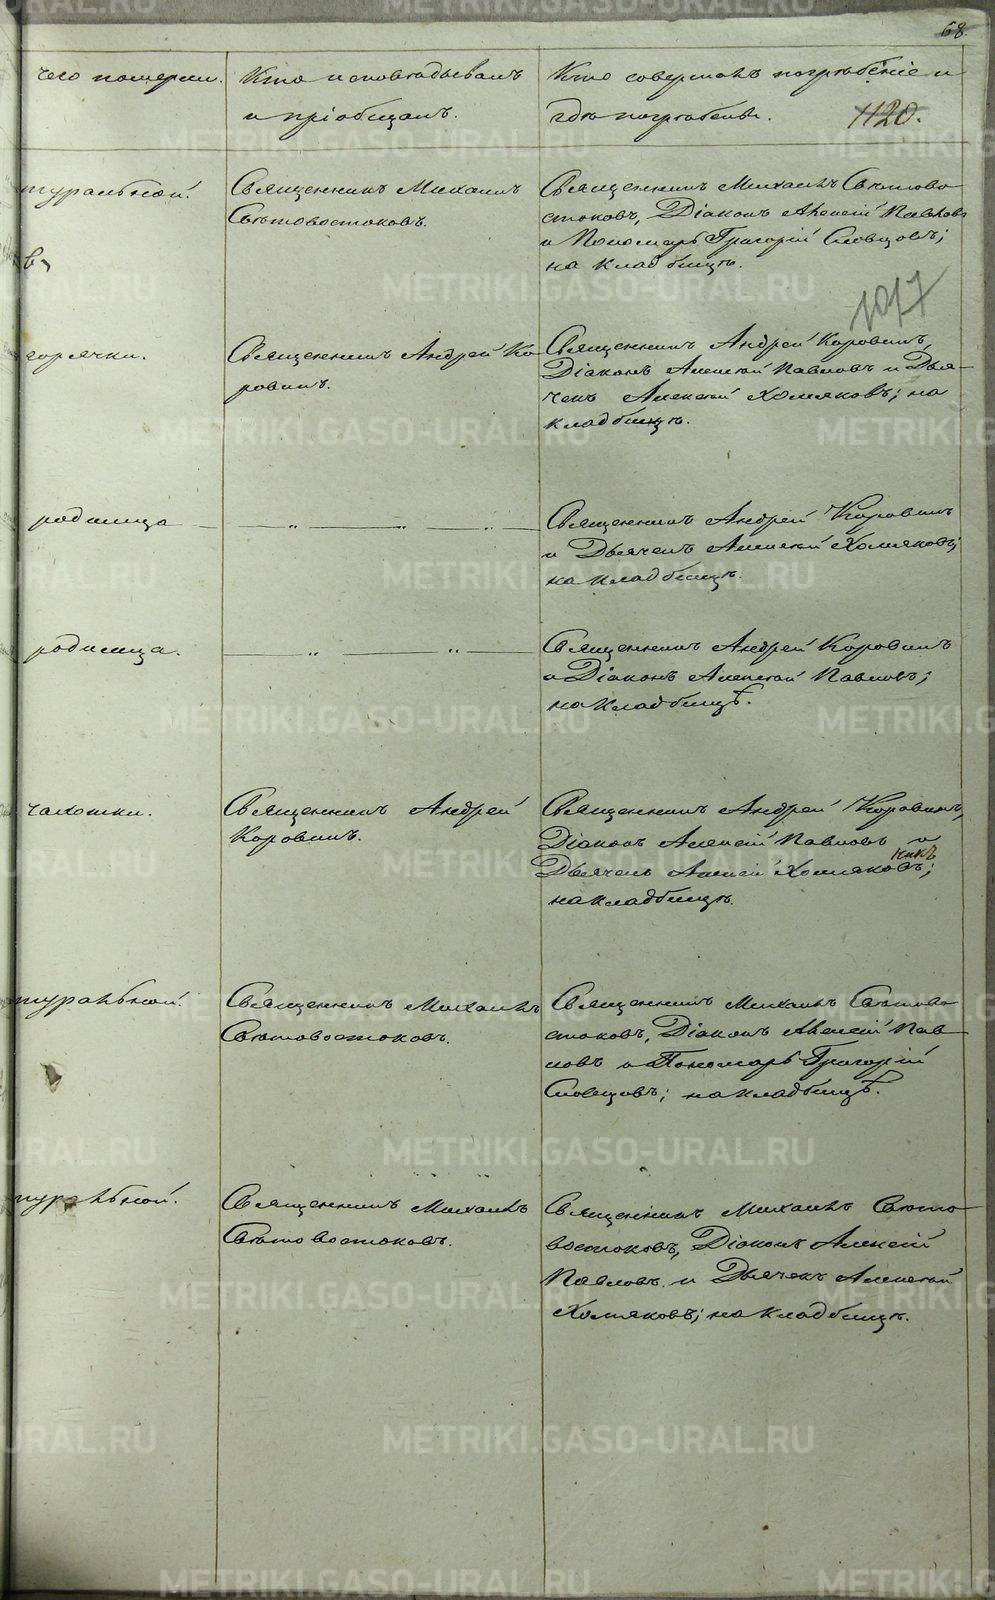 68
чего померли.
Кто исповѣдывалъ
и пріобщалъ.
Кто совершалъ погребеніе и
гдѣ погребены.
1120.
туральной.
Священникъ Михаилъ
Свѣтовостоковъ.
Священникъ Михаилъ Свѣтово-
стоковъ, Діаконъ Алексій Павловъ
и Пономарь Григорій Словцовъ;
на кладбищѣ.
1017
горячки.
Священникъ Андрей Ко-
ровинъ.
Священникъ Андрей Коровинъ,
Діаконъ Алексѣй Павловъ и Дья-
чекъ Алексѣй Хомяковъ; на
кладбищѣ.
родимца
Священникъ Андрей Коровинъ
и Дьячекъ Алексѣй Хомяковъ;
на кладбищѣ.
родимца.
Священникъ Андрей Коровинъ
и Діаконъ Алексѣй Павловъ;
на кладбищѣ.
чахотки.
Священникъ Андрей
Коровинъ.
Священникъ Андрей Коровинъ,
Діаконъ Алексѣй Павловъ и
Дьячекъ Алексѣй Хомяковъ;
на кладбищѣ.
туральной.
Священникъ Михаилъ
Свѣтовостоковъ.
Священникъ Михаилъ Свѣтово-
стоковъ, Діаконъ Алексій Пав-
ловъ и Пономарь Григорій
Словцовъ; на кладбищѣ.
туральной.
Священникъ Михаилъ
Свѣтовостоковъ.
Священникъ Михаилъ Свѣто-
востоковъ, Діаконъ Алексій
Павловъ и Дьячекъ Алексѣй
Хомяковъ; на кладбищѣ.
METRIKI.GASO-URAL.RU